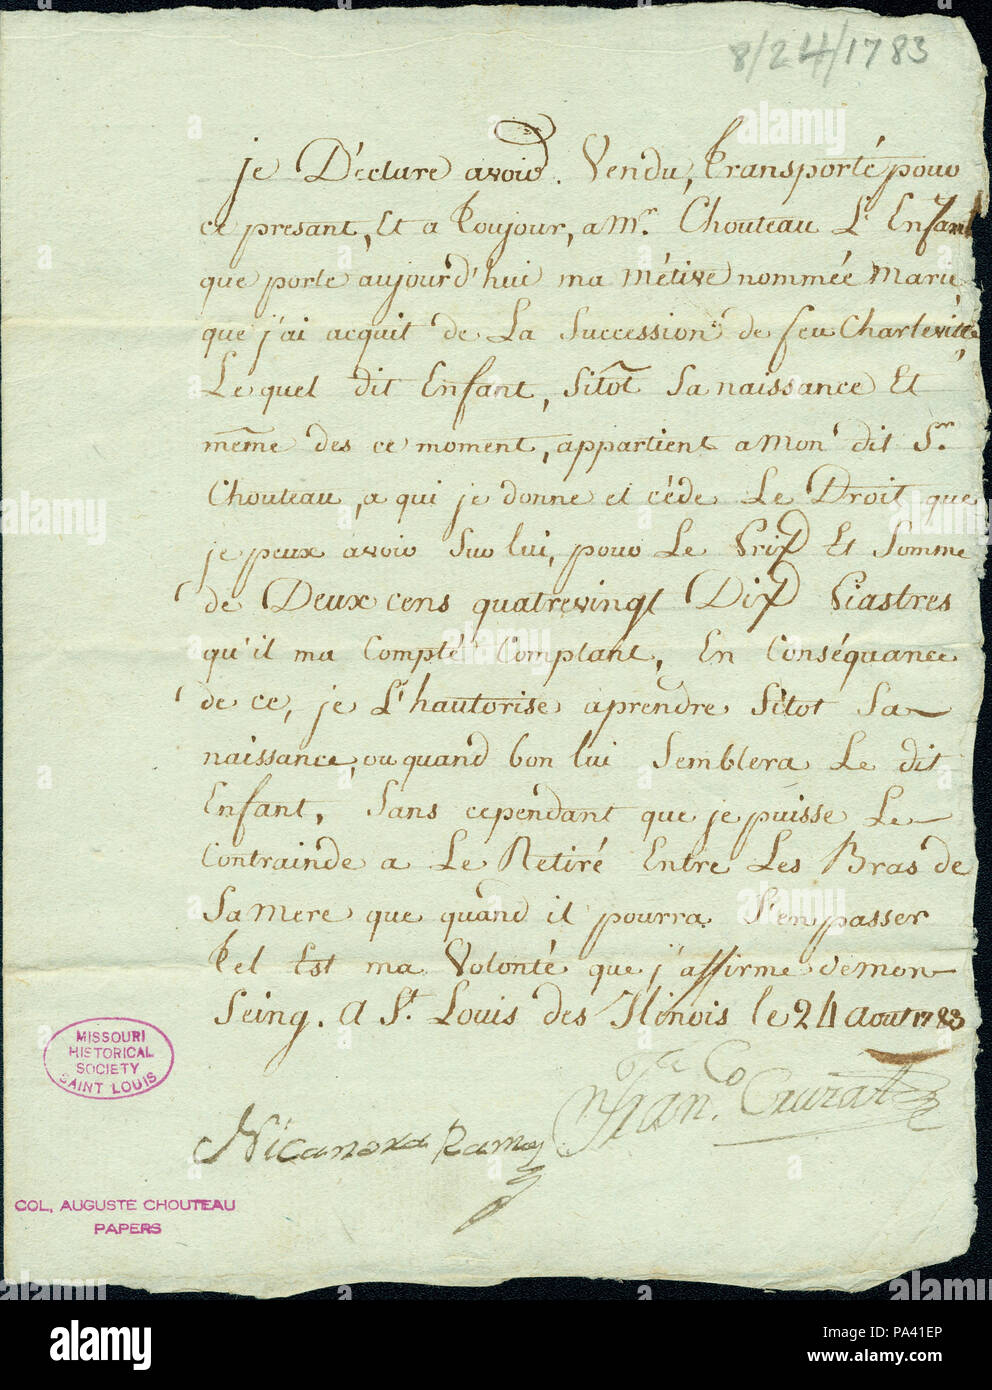 8/24/1783
je Déclare avoir Vendu, Transporté pour
ce presant, Et a Toujour, a Mr. Chouteau L'Enfant
que porte aujourd'hui ma métive nommée Marie
que j'ai acquit de La Succession de feu Charleville,
Le quel dit Enfant, Sitôt Sa naissance Et
même des ce moment, appartient a Mon dit Sr
Chouteau, a qui je donne et cede Le Droit que
je peux avoir Sur lui, pour Le Prix Et Somme
de Deux cens quatrevingt Dix Piastres
qu'il ma Compté Comptant, En Conséquance
de ce, je L'hautorise aprendre Sitot Sa
naissance, ou quand bon lui Semblera Le dit
Enfant, Sans cependant que je puisse Le
Contrainde a Le Retiré Entre Les Bras de
Sa Mere que quand il pourra S'en passer
Tel Est ma Volonté que j'affirme de mon
Seing. A St. Louis des Ilinois le 24 Aout 1783
Franco. Cruzat
Nicanora Ramos
MISSOURI
HISTORICAL
SOCIETY
SAINT LOUIS
COL. AUGUSTE CHOUTEAU
PAPERS
alamy
Image ID: PA41EP
www.alamy.com